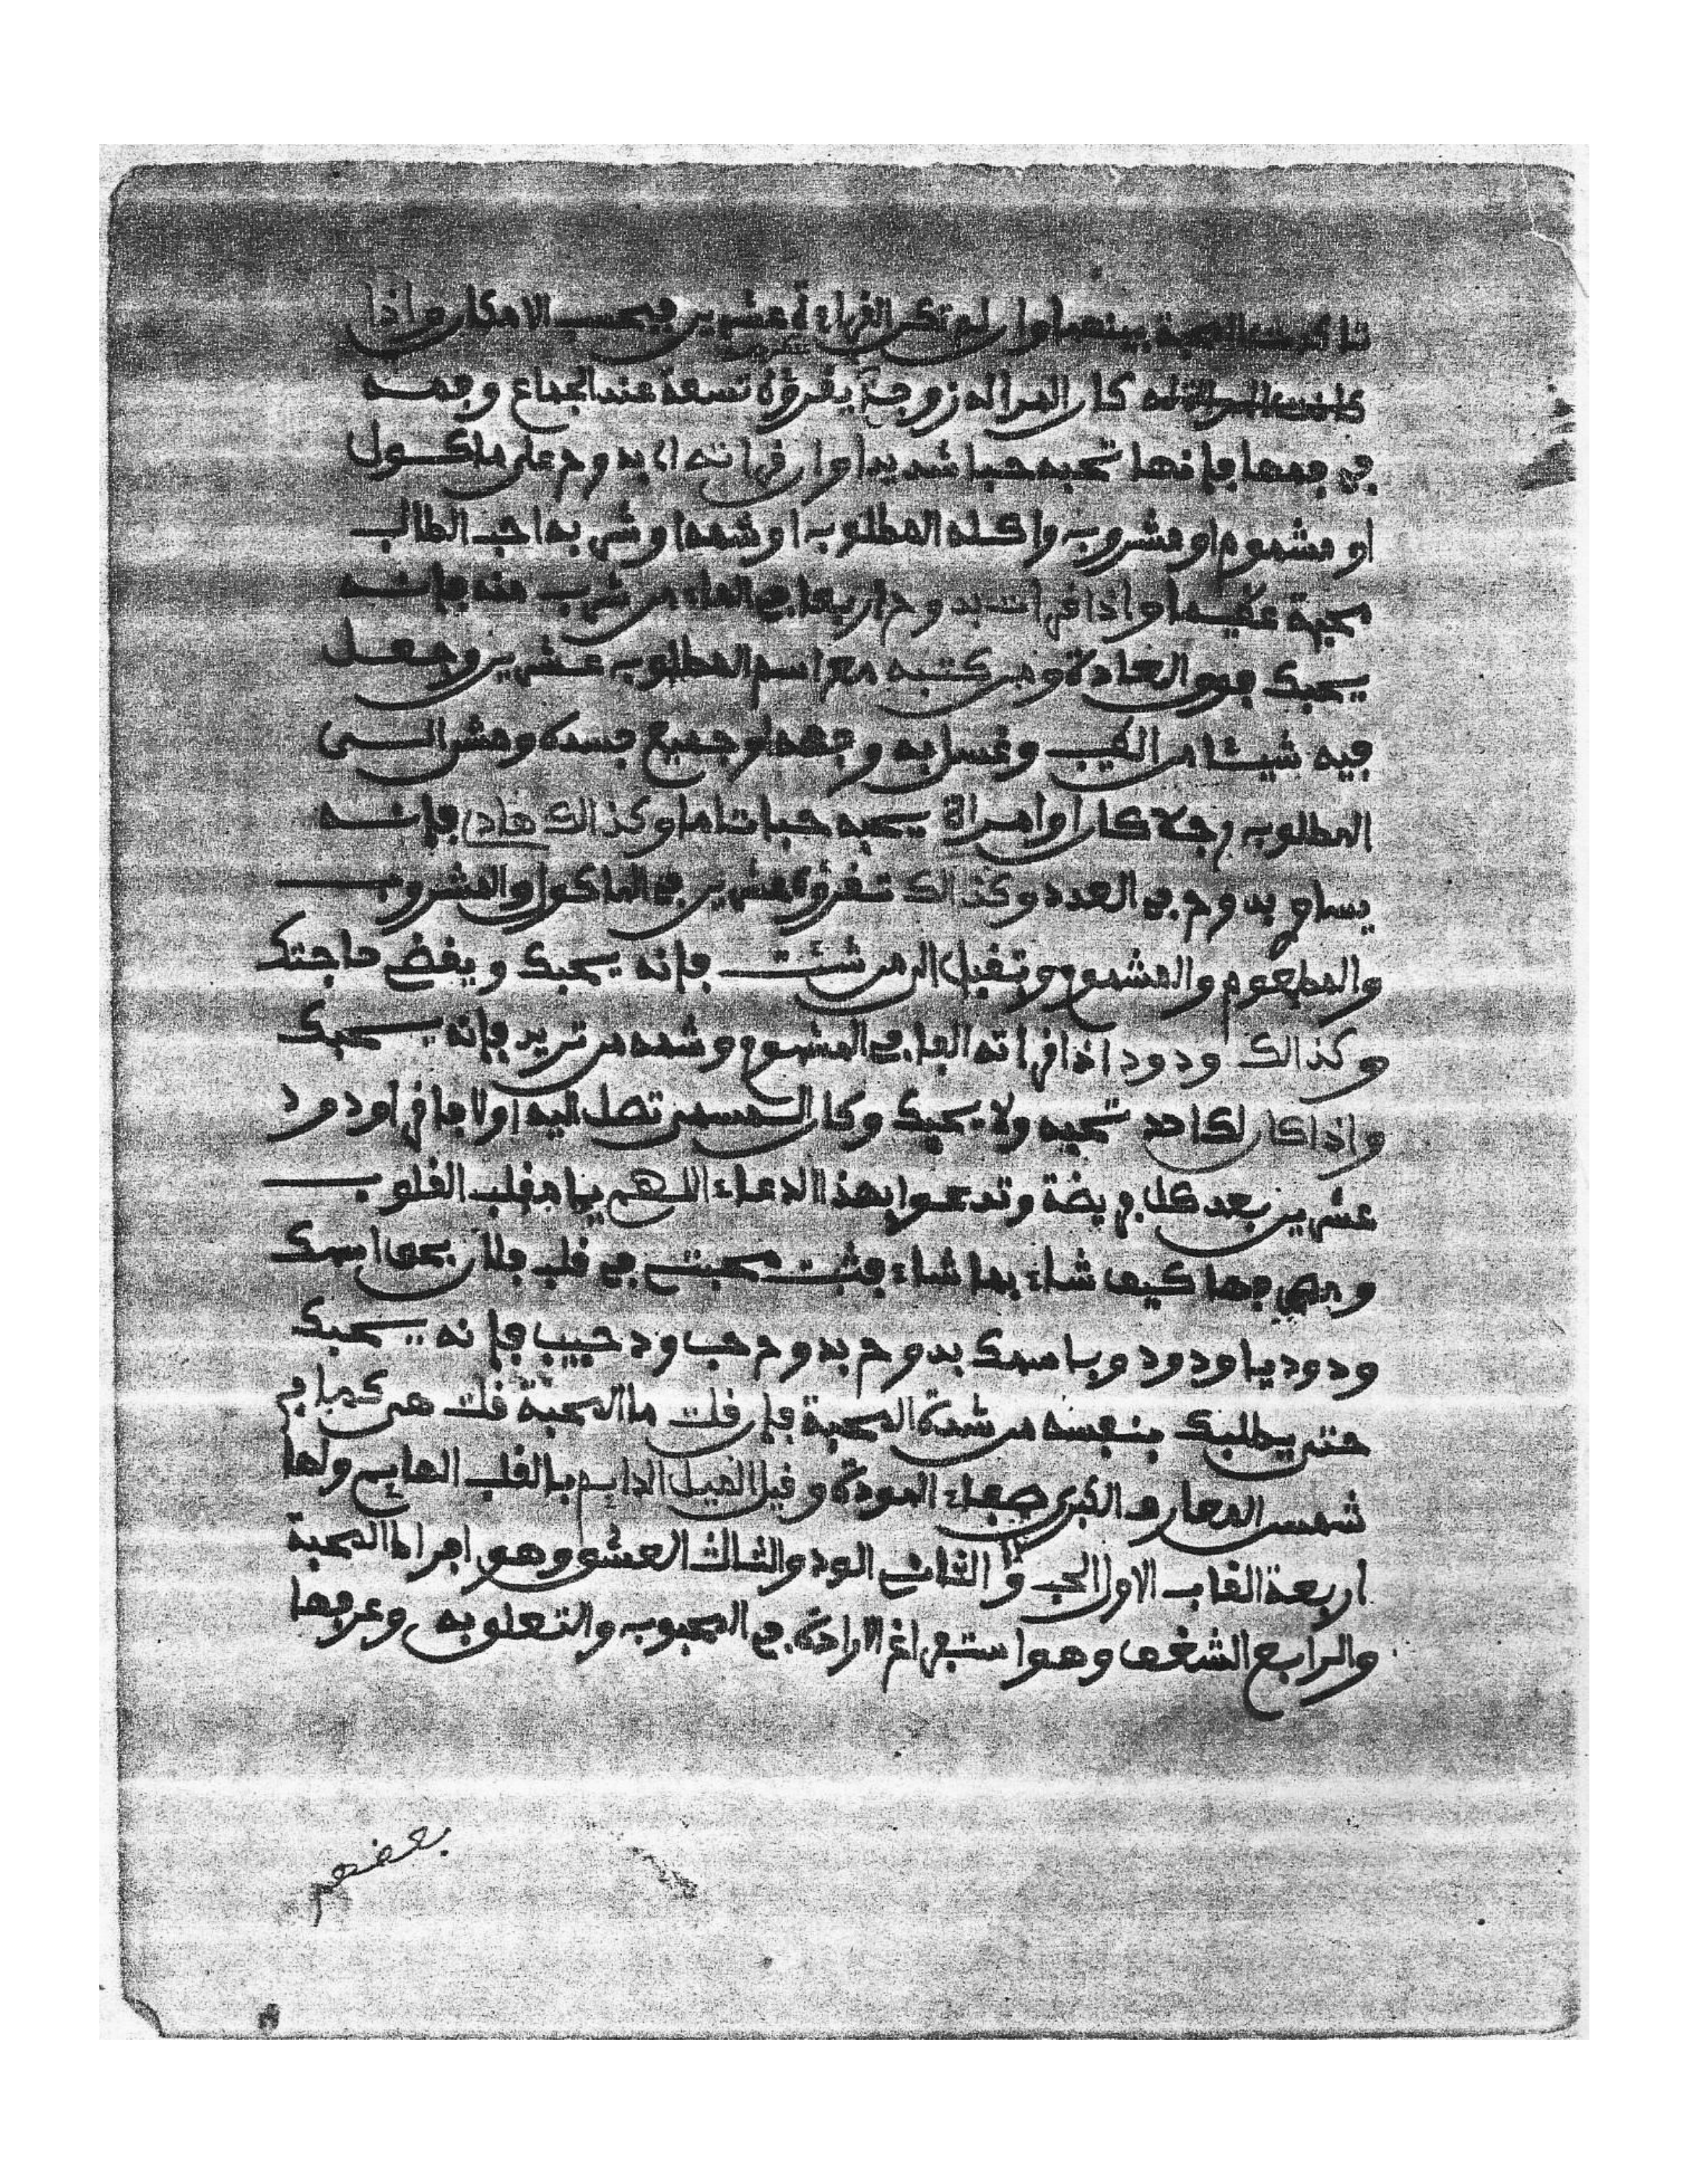 تاكدت المحبة بينهما وان لم تكن القراءة عشرين فبحسب الامكان واذا
كان المراد زوجة يقرؤه تسعة عند الجماع وفمه
في فمها فإنها تحبه حبا شديدا وان قراته اي بدوح على ماكول
او مشموم او مشروب واكله المطلوب او شمه او شربه احب الطالب
محبة عظيما واذا قرات بدوح اربعا في الماء من شرب منه فإنه
يحبك فوق العادة ومن كتبه مع اسم المطلوب عشرين وجعل
فيه شيئا من الطيب وغسل به وجهه او جميع جسده ومشى الى
المطلوب رجلا كان او امراة يحبه حبا تاما وكذالك هادي فإنه
يساوي بدوح في العدد وكذالك تقرؤه عشرين في الماكول والمشروب
والمطعوم والمشموم وتقبل الى من شئت فإنه يحبك ويقضي حاجتك
وكذالك ودود اذا قراته الفا في المشموم وشمه من تريد فإنه يحبك
واذا كان لك احد تحبه ولا يحبك وكان ممن تصل اليه اولا فاقرا ودود
عشرين بعد كل فريضة وتدعوا بهذا الدعاء اللهم يا مقلب القلوب
كيف شاء بما شاء فثبت محبتي في قلب فلان بحق اسمك
ودود يا ودود وباسمك بدوح بدوح حب ود حبيب فإنه يحبك
حتى يطلبك بنفسه من شدة المحبة فإن قلت ما المحبة قلت هي كما في
شمس المعارف الكبرى صفاء المودة وقيل الميل الدايم بالقلب الهايم ولها
اربعة القاب الاول الحب والثاني الود والثالث العشق وهو افراط المحبة
والرابع الشغف وهو استفراغ الارادة في المحبوب والتعلق به وعرفها
بعضهم